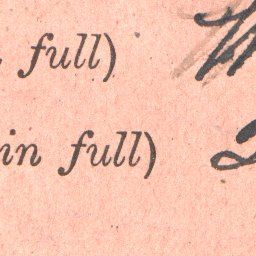 full)
in full)